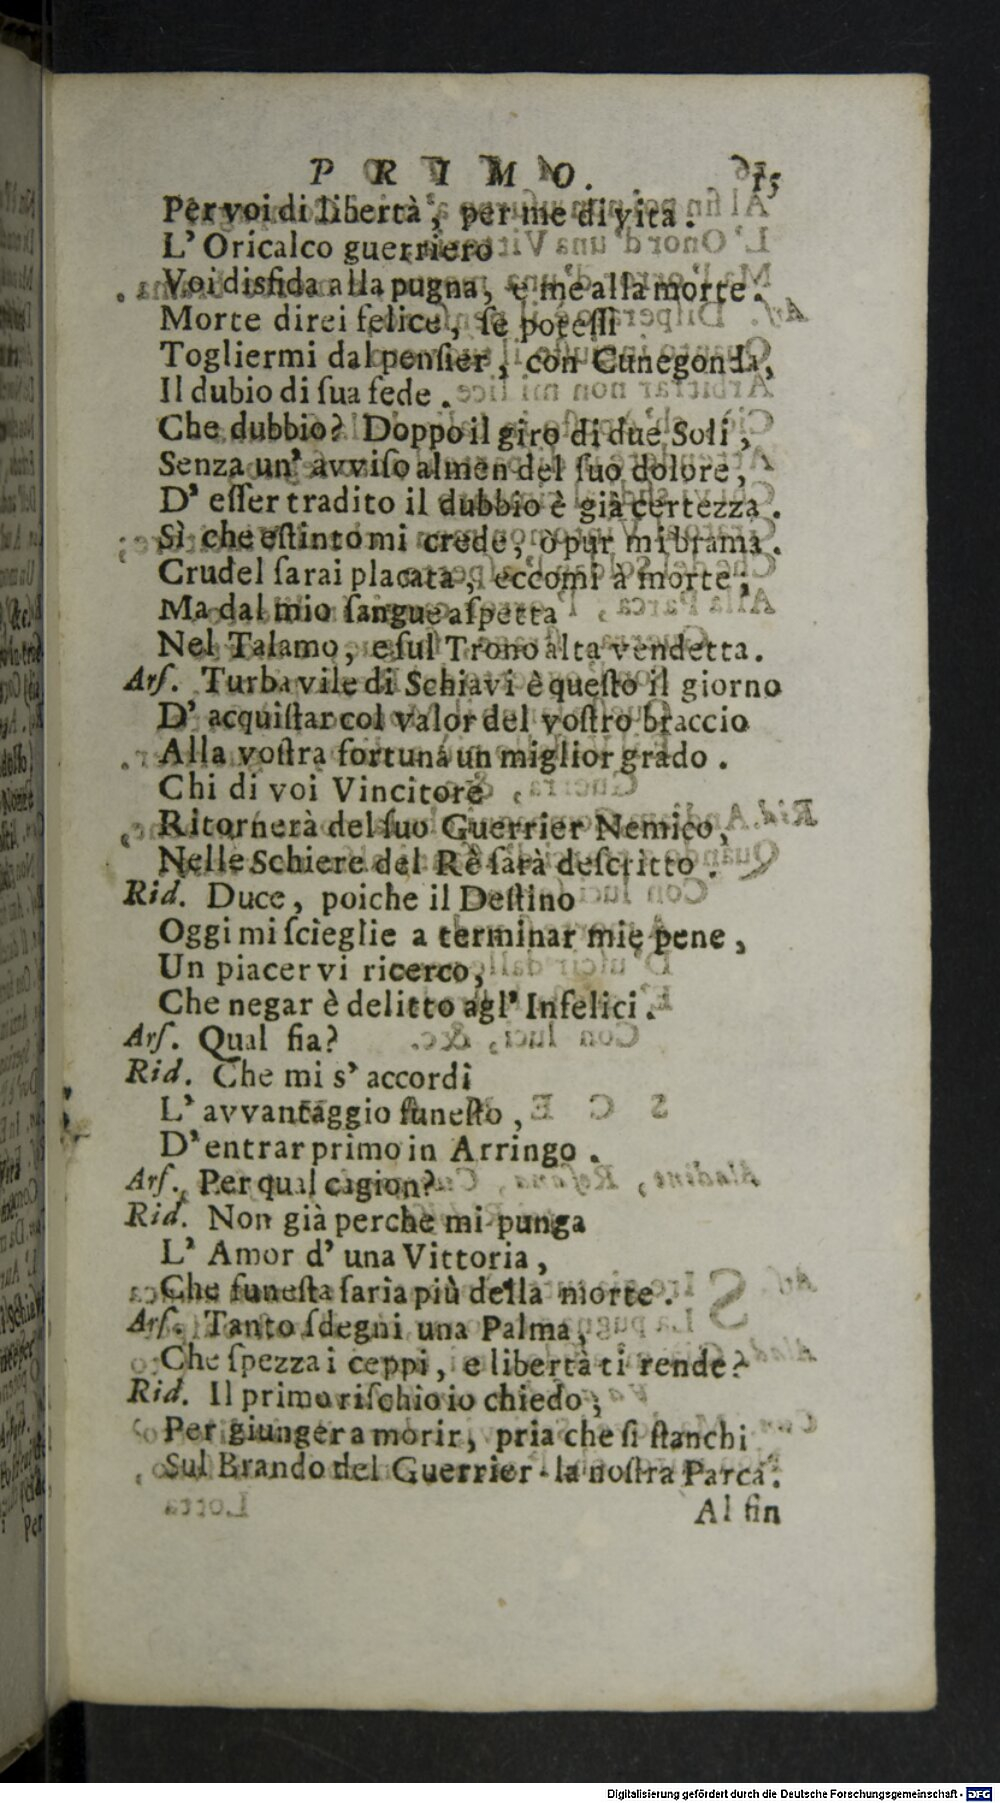 PRIMO. 15
Per voi di libertà, per me di vita.
L' Oricalco guerriero
Voi disfida alla pugna, e me alla morte.
Morte direi felice, ſe poteſſi
Togliermi dal penſier, con Cunegonda,
Il dubio di ſua fede.
Che dubbio? Doppo il giro di due Soli,
Senza un' avviſo almen del ſuo dolore,
D' eſſer tradito il dubbio è già certezza.
Sì che eſtinto mi crede, o pur mi brama.
Crudel ſarai placata, eccomi à morte,
Ma dal mio ſangue aſpetta
Nel Talamo, e ſul Trono alta vendetta.
Arſ. Turba vile di Schiavi è queſto il giorno
D' acquiſtar col valor del voſtro braccio
Alla voſtra fortuna un miglior grado.
Chi di voi Vincitore
Ritornerà del ſuo Guerrier Nemico,
Nelle Schiere del Rè ſarà deſcritto.
Rid. Duce, poiche il Deſtino
Oggi mi ſcieglie a terminar mie pene,
Un piacer vi ricerco,
Che negar è delitto agl' Infelici.
Arſ. Qual fia?
Rid. Che mi s' accordi
L' avvantaggio funeſto,
D' entrar primo in Arringo.
Arſ. Per qual cagion?
Rid. Non già perche mi punga
L' Amor d' una Vittoria,
Che funeſta ſaria più della morte.
Arſ. Tanto ſdegni una Palma,
Che ſpezza i ceppi, e libertà ti rende?
Rid. Il primo riſchio io chiedo,
Per giunger a morir, pria che ſi ſtanchi
Sul Brando del Guerrier la noſtra Parca.
Al fin
Digitalisierung gefördert durch die Deutsche Forschungsgemeinschaft - DFG